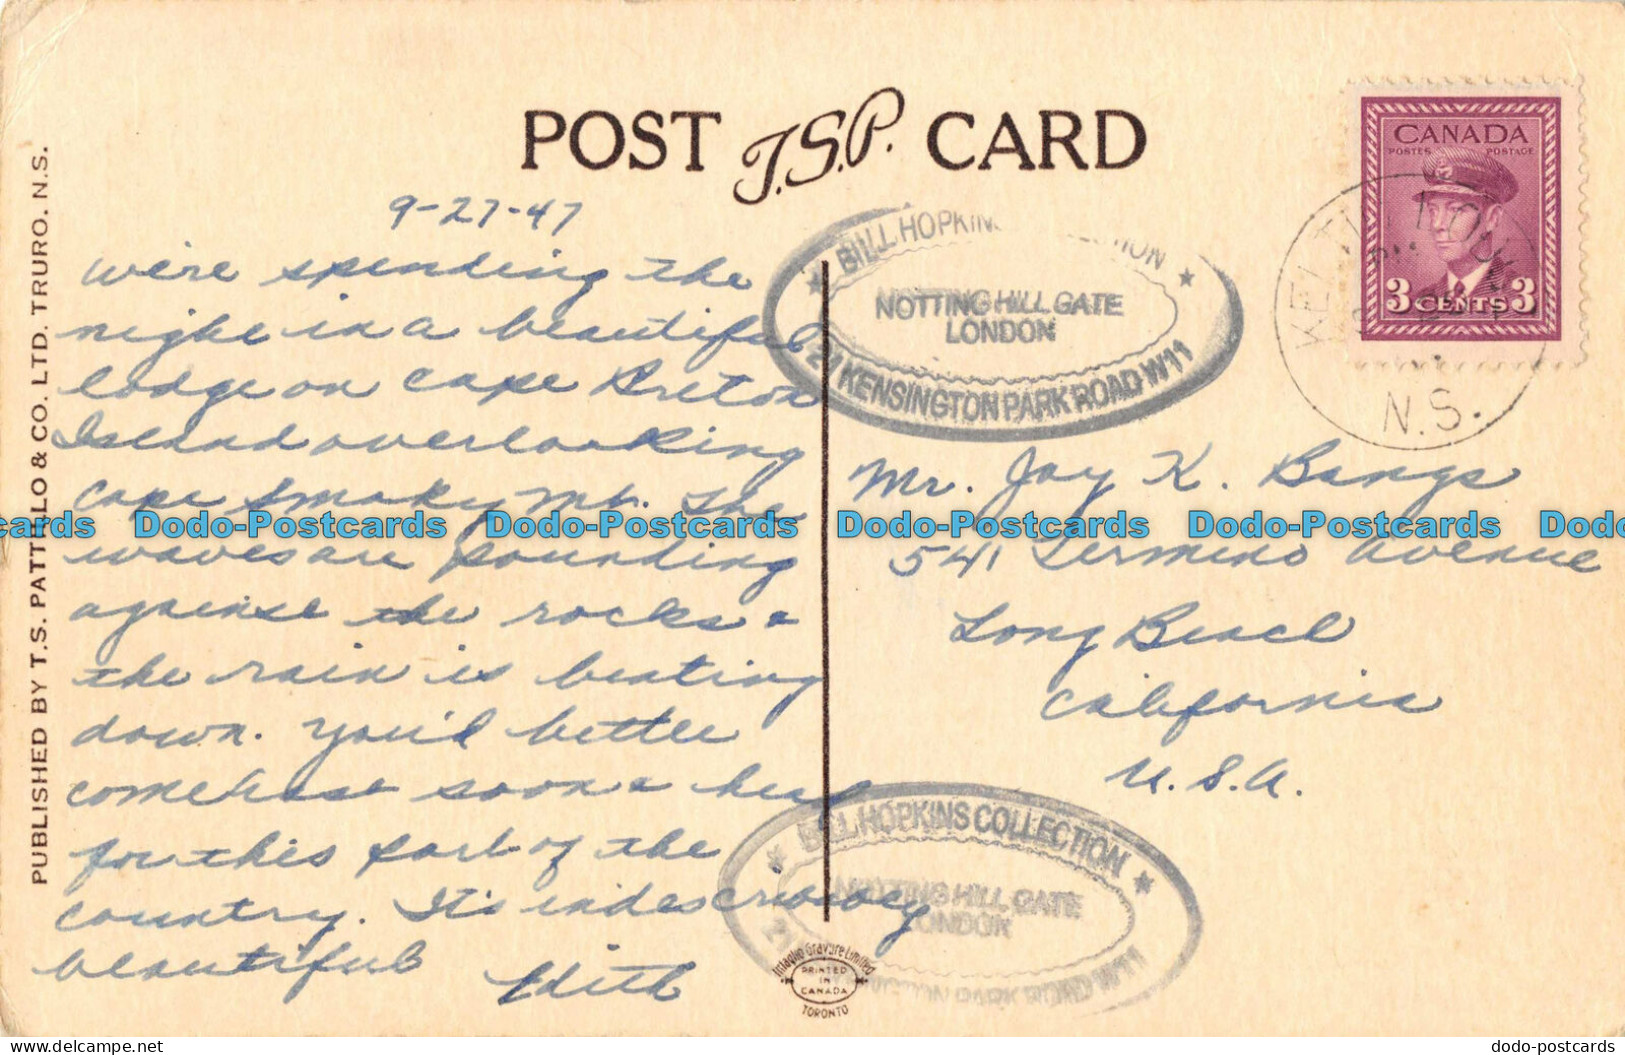 POST T.S.P. CARD
CANADA
POSTES POSTAGE
3 CENTS 3
N.S.
PUBLISHED BY T.S. PATTILLO & CO. LTD. TRURO, N.S.
9-27-47
We're spending the
night in a beautiful
lodge on Cape Breton
Island overlooking
Cape Smoky Mt. The
waves are pounding
against the rocks &
the rain is beating
down. You'd better
come East soon & head
for this part of the
country. It's indescribably
beautiful Edith
BILL HOPKINS COLLECTION
NOTTING HILL GATE
LONDON
21 KENSINGTON PARK ROAD W11
Mr. Jay K. Bangs
541 Termino Avenue
Long Beach
California
U.S.A.
BILL HOPKINS COLLECTION
NOTTING HILL GATE
LONDON
21 KENSINGTON PARK ROAD W11
Intaglio Gravure Limited
PRINTED
IN
CANADA
TORONTO
Dodo-Postcards Dodo-Postcards Dodo-Postcards Dodo-Postcards
www.delcampe.net
dodo-postcards